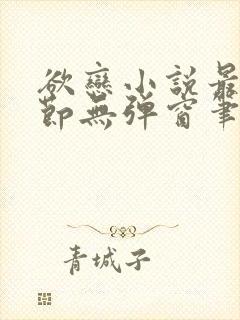 欲戀小說最
節無彈窗筆
青城子